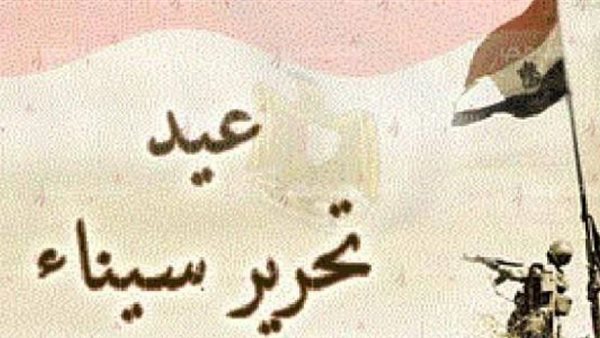 عيد
تحرير سيناء